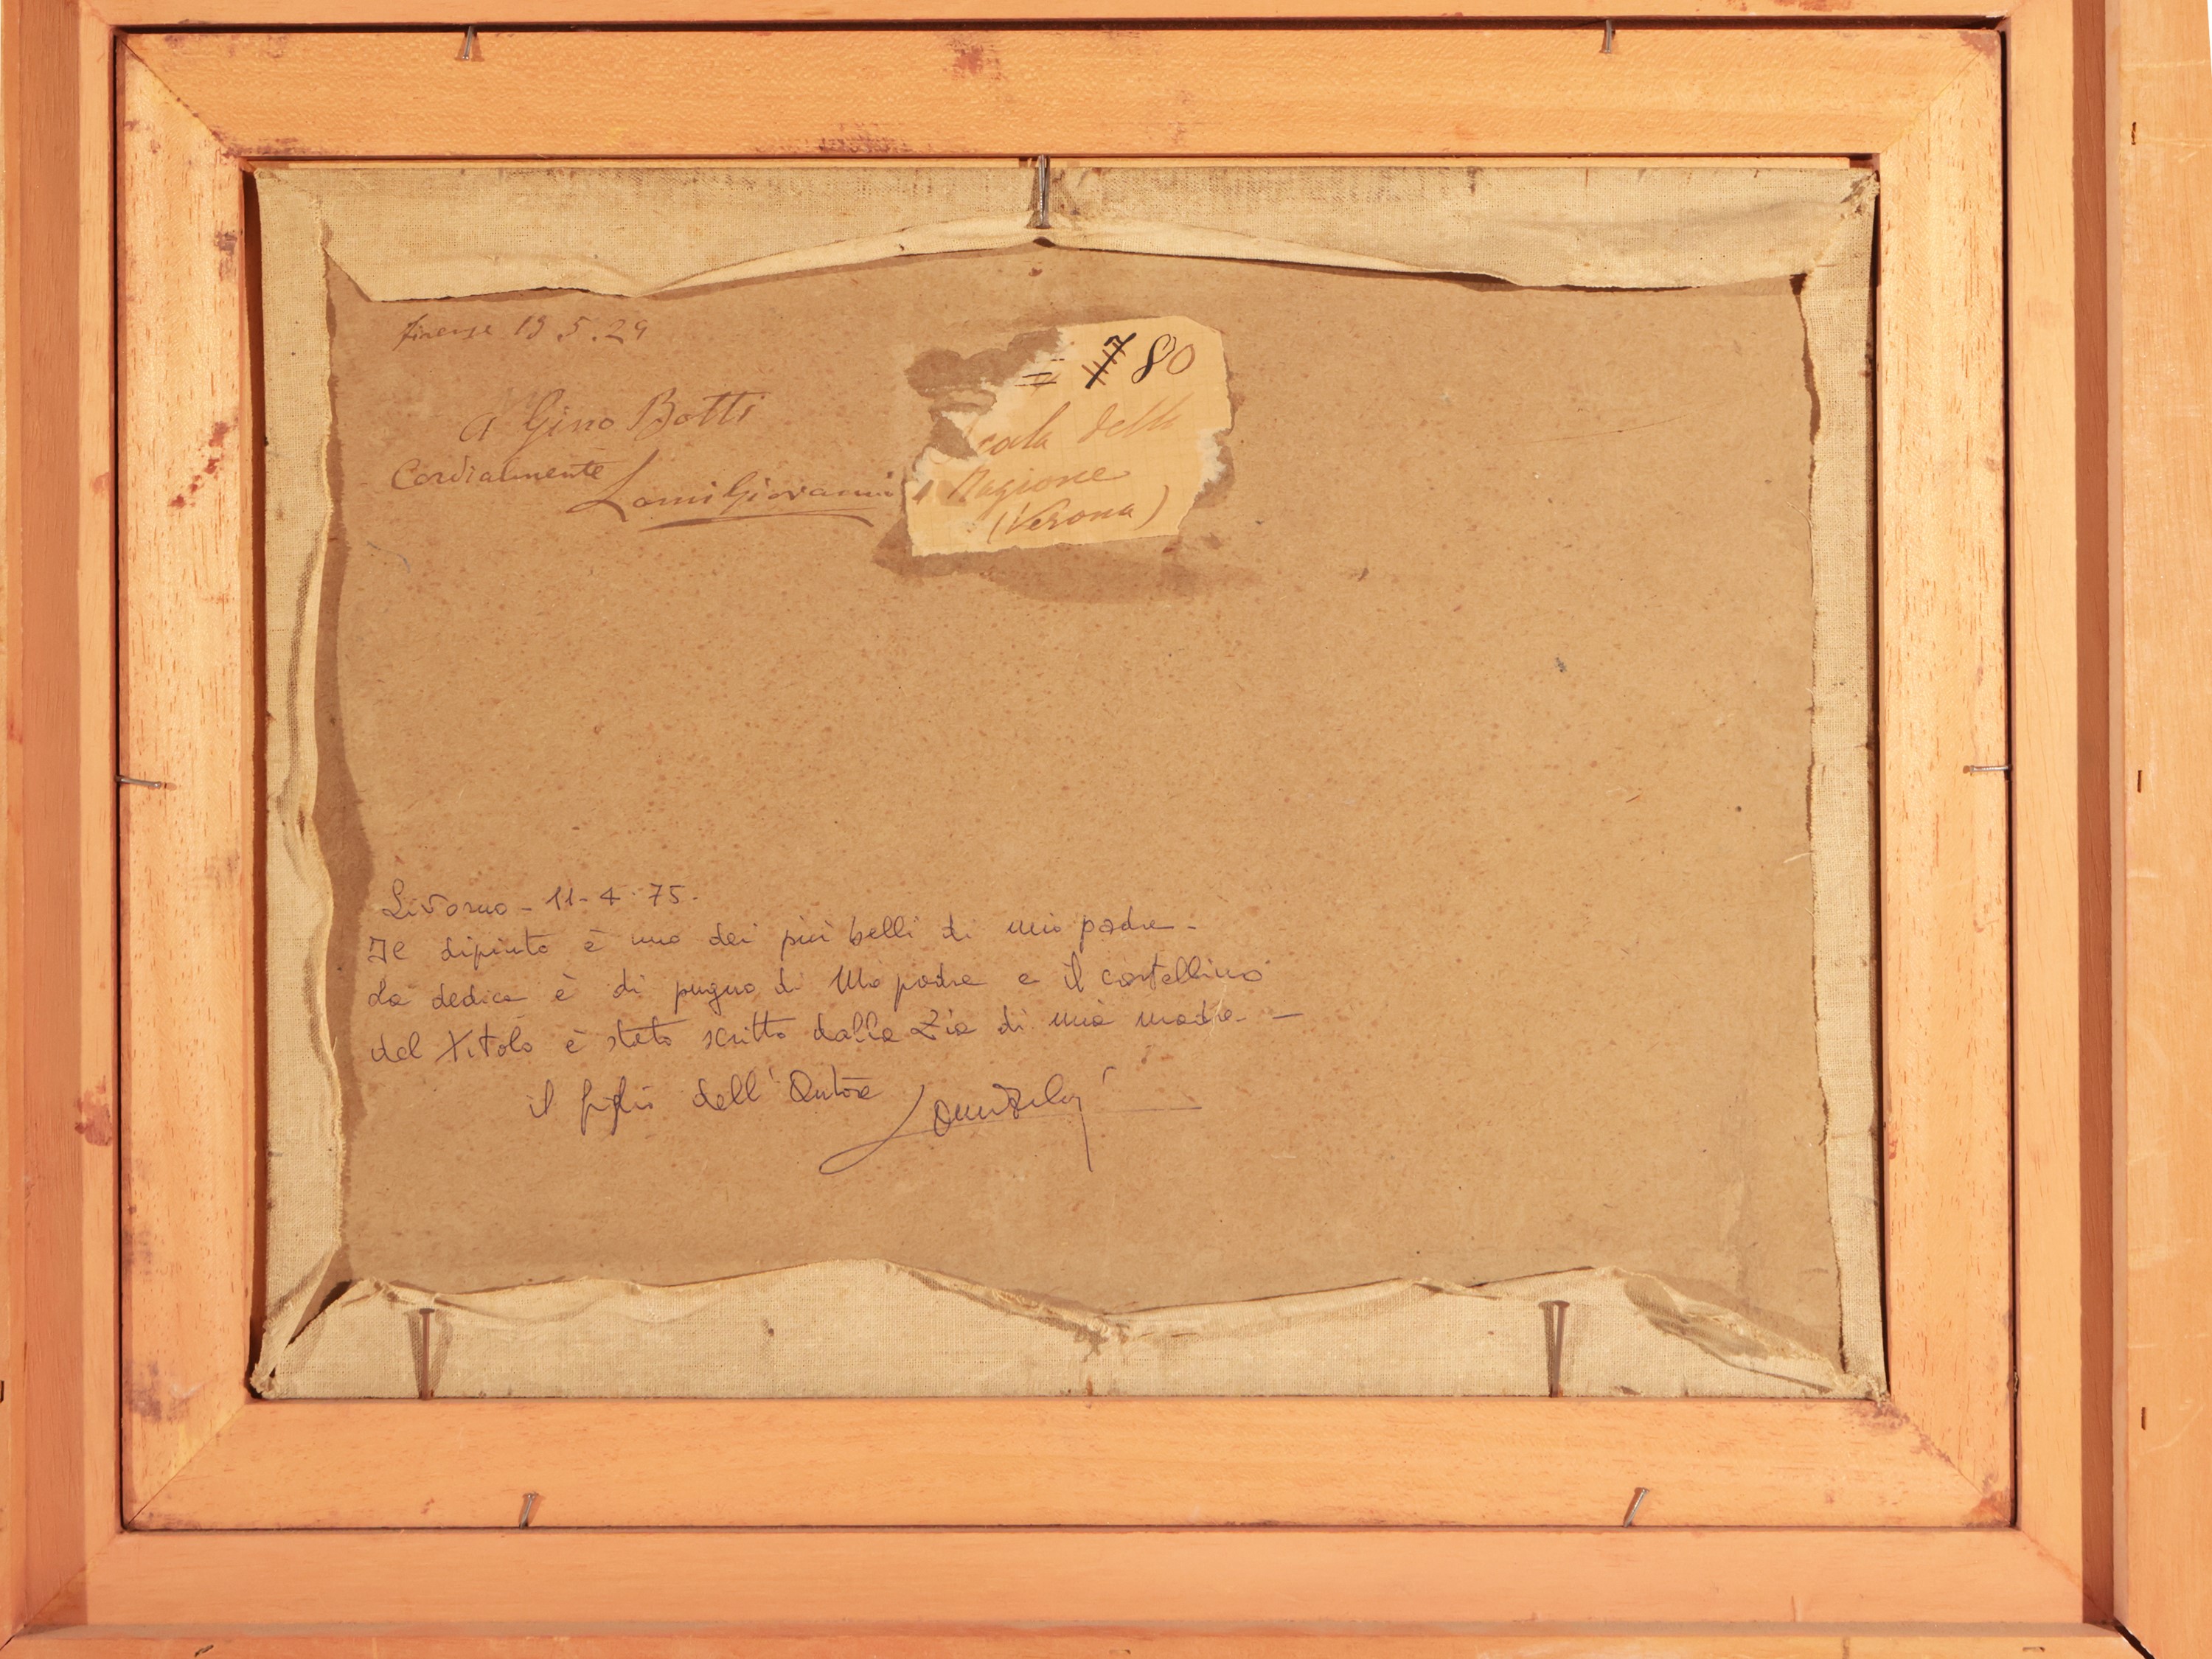 Firenze 19.5.29
A Gino Botti
Cordialmente
Lomi Giovanni
= 7 80
cala della
Ragione
(Verona)
Livorno - 11-4-75.
Il dipinto è uno dei più belli di mio padre -
La dedica è di pugno di Mio padre e il cartellino
del titolo è stato scritto dalla Zia di mia madre -
il figlio dell'Autore Lomi